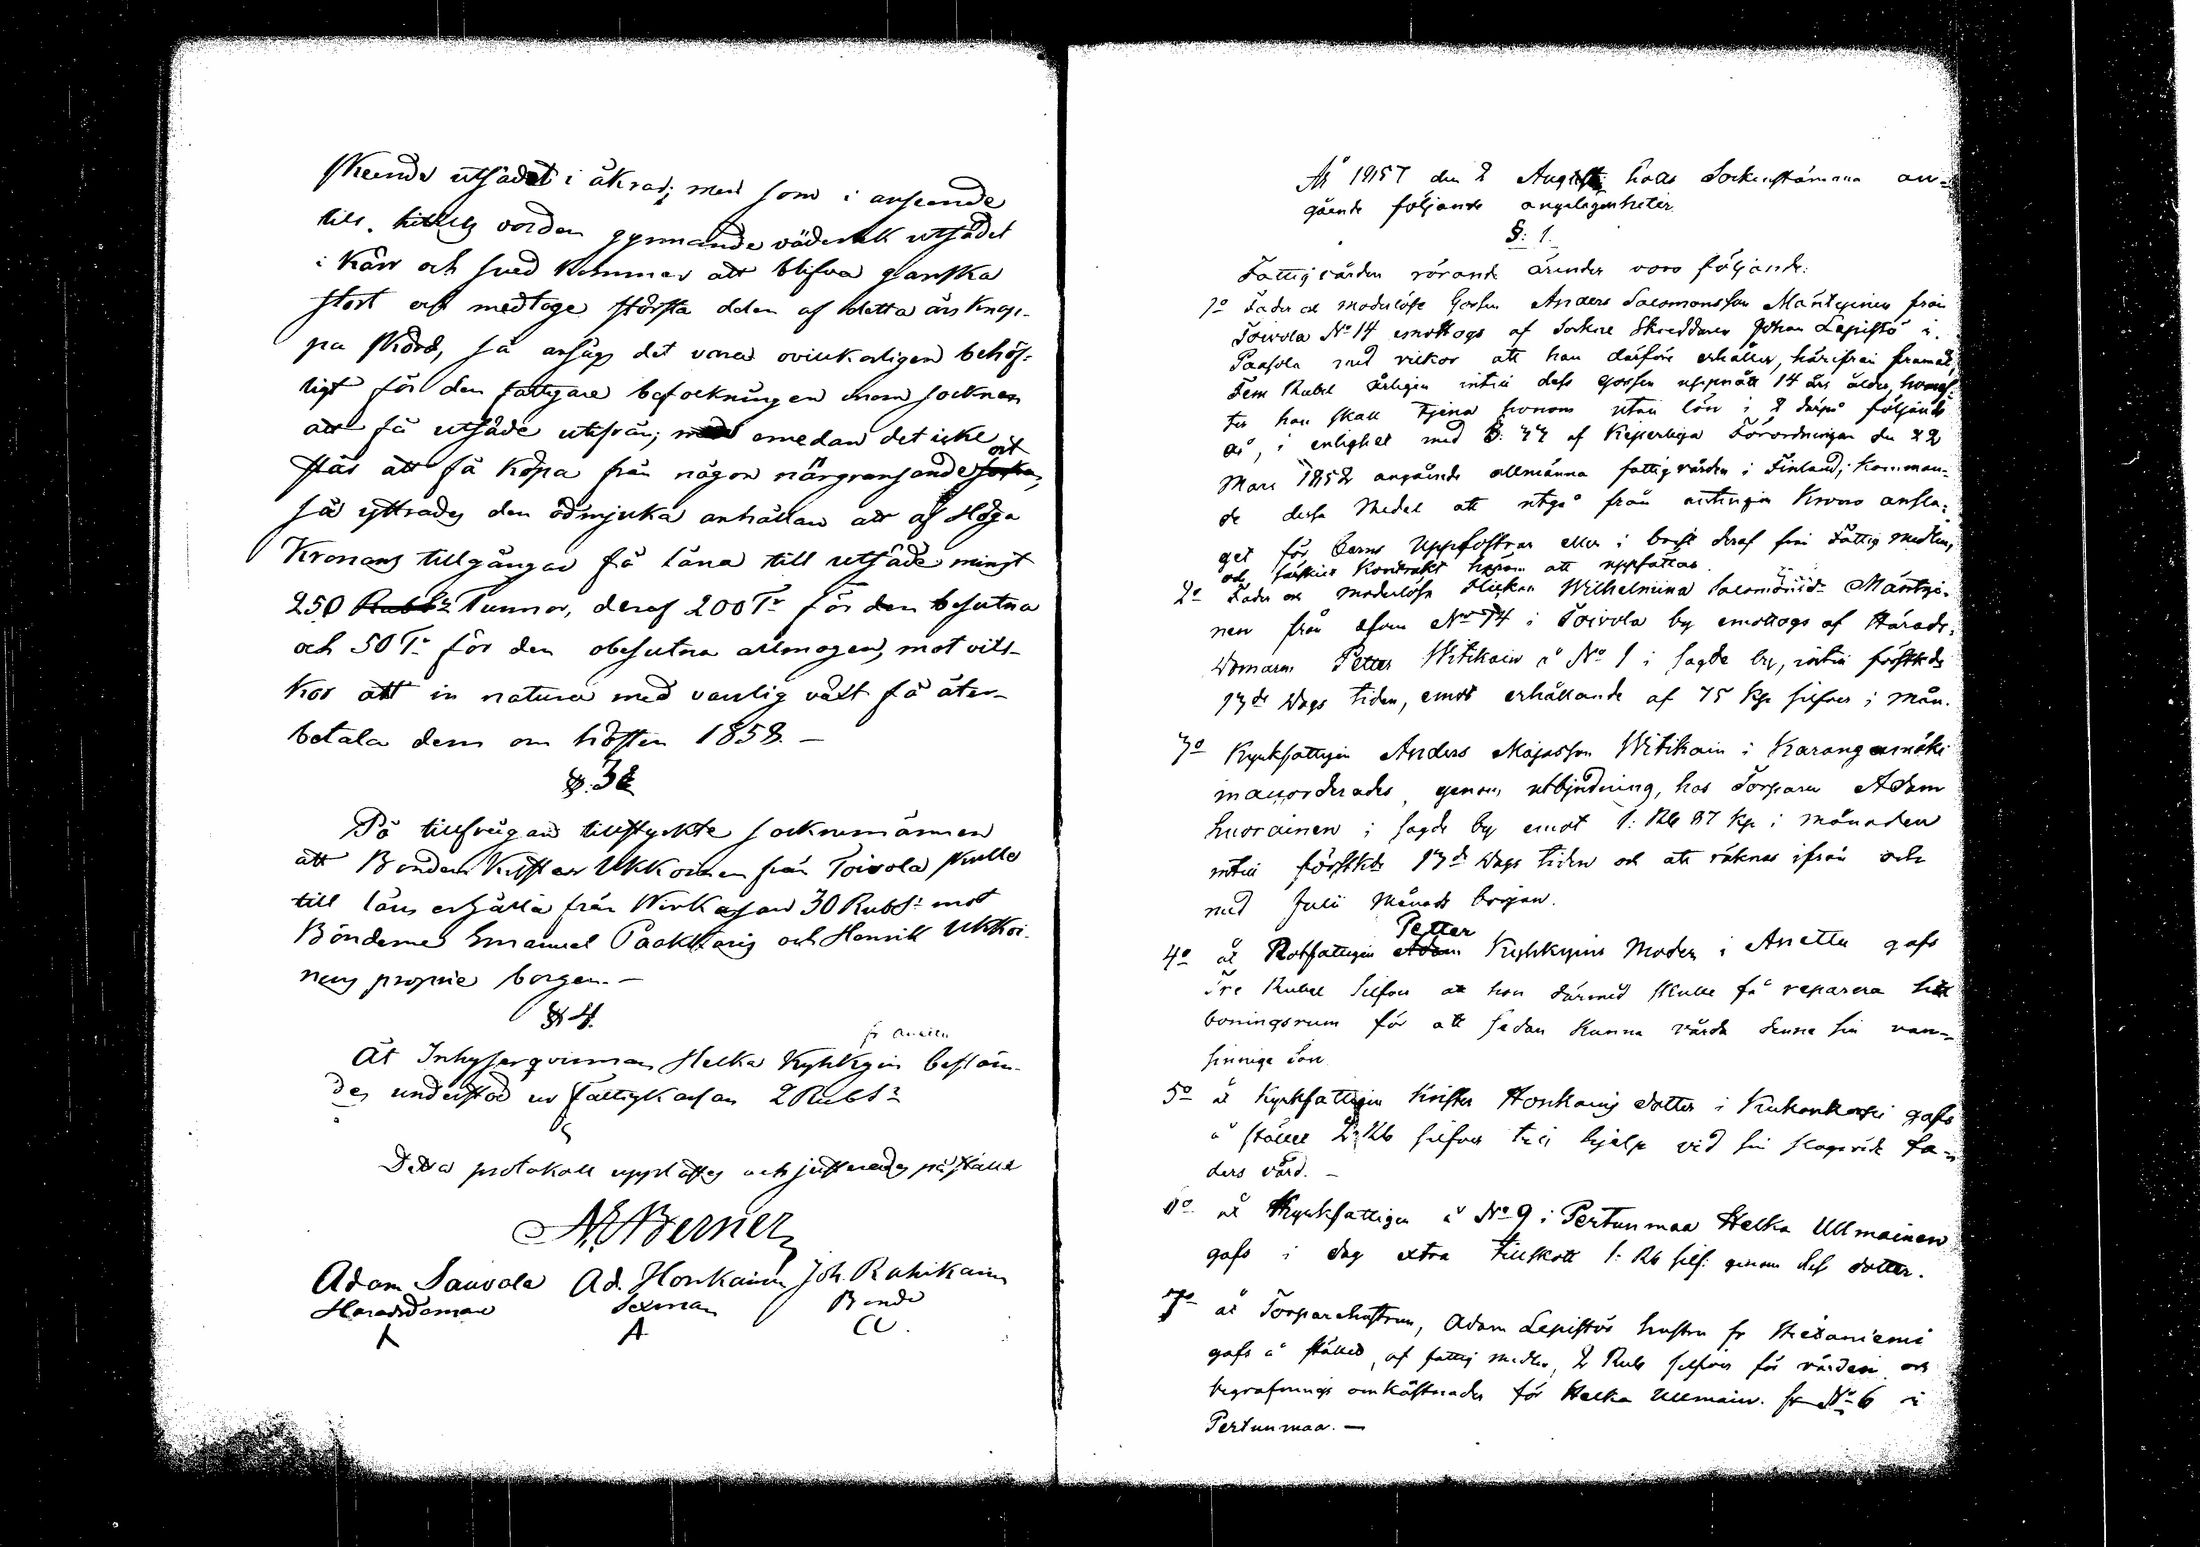 skeende utsädet i åkrar; men som i anseende
till hittills vorden gynnande väderlek utsädet
i Kärr och sved kommer att blifva ganska
stort och medtoge största delen af detta års knap-
pa skörd, så ansågs det vara ovilkorligen behöf-
ligt för den fattigare befolkningen inom socknen
att få utsäde utifrån; emedan det icke
står att få köpa från någon närgränsande ort
så yttrades den ödmjuka anhållan att af Höga
Kronans tillgångar få låna till utsäde minst
250 Tunnor, deraf 200 Tr för den besutna
och 50 Tr för den obesutna allmogen, mot vill-
kor att in natura med vanlig växt få åter-
betala dem om hösten 1858. —
§. 3
På tillfrågan tillstyckte socknemännen
att Bonden Krister Ukkoinen från Toivola skulle
till låns erhålla från 30 Rub S: mot
Bönderne Emanuel Paakkaris och Henrik Ukkoi-
nens proprie borgen. —
§ 4.
fr Anttu
Åt Inhysesqvinnan Helka Kyhkyin bestäm-
des understöd ur fattigkassan 2 Rub S:
Detta protokoll upplästes och justerades på stället
N. Berner
Adam Sauvala Ad. Honkainen Joh. Rahikain
Häradsdomare Sexman Bonde
År 1857 den 2 Augusti hölls Sockenstämma an-
gående följande angelägenheter.
§: 1.
Fattigvården rörande ärender voro följande:
1o Fader och moderlöse Gossen Anders Salomonsson Mäntyinen från
Toivola No 14 emottogs af Sockne Skreddaren Johan Lepistö i
Paasola med vilkor att han därföre erhåller, härifrån framåt,
Fem Rubel årligen intill dess gossen uppnått 14 års ålder, hvaref-
ter han skall tjena honom utan lön i 2 därpå följande
år, i enlighet med §. 44 af Kejserliga Förordningen den 22
Mars 1852 angående allmänna fattigvården i Finland; komman-
de dessa medel att utgå från antingen Krono ansla-
get för Barns Uppfostran eller i brist deraf från Fattig medlen,
och särskilt Kontrakt härom att uppsättas.
2o Fader och moderlösa Flickan Wilhelmina Salomonsdr Mäntyi-
nen från No 14 i Toivola by emottogs af Härads-
domaren Petter Witikain å No 1 i sagde by, intill förstkde
13de Dags tiden, emot erhållande af 75 kp silfver i mån.
3o Kyrkfattigen Anders Majasson Witikain i Karangamäki
inackorderades, genom utbjudning, hos Torparen Adam
Suorainen i sagde by emot 1: Rb 87 kp i månaden
intill förstkde 13de Dags tiden och att räknas ifrån och
med Juli Månads början.
Petter
4o åt Rotfattigen Adam Kyhkyins Moder i Anettu gafs
Tre Rubel Silfver att hon därmed skulle få reparera sitt
boningsrum för att sedan kunna vårda denne sin van-
sinnige Son
5o åt Kyrkfattigen Krister Honkains dotter i Kuhankoski gafs
å stället 2 Rb silfver till hjelp vid sin slagrörde fa-
ders vård. —
6o åt Kyrkfattigen å No 9 i Pertunmaa Helka Ullmainen
gafs i dag extra tillskott 1: Rb silf: genom dess dotter.
7o åt Torparehustrun, Adam Lepistös hustru fr Hietaniemi
gafs å stället, af fattig medlen, 2 Rub silfver för vården och
begrafnings omkostnader för Helka Ullmain. fr No 6 i
Pertunmaa. —